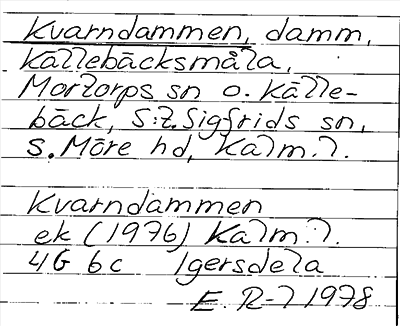 Kvarndammen, damm,
Källebäcksmåla,
Mortorps sn o. Källe-
bäck, S:t Sigfrids sn,
S. Möre hd, Kalm. l.
Kvarndammen
ek (1976) Kalm. l.
4G 6c Igersdela
E. R-l 1978